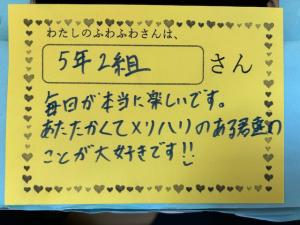 わたしのふわふわさんは、
5年2組 さん
毎日が本当に楽しいです。
あたたかくてメリハリのある君達の
ことが大好きです!!